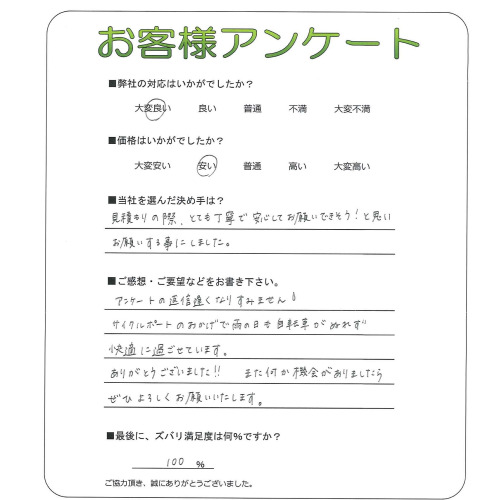 お客様アンケート
■弊社の対応はいかがでしたか？
大変良い 良い 普通 不満 大変不満
■価格はいかがでしたか？
大変安い 安い 普通 高い 大変高い
■当社を選んだ決め手は？
見積もりの際、とても丁寧で安心してお願いできそう！と思い
お願いする事にしました。
■ご感想・ご要望などをお書き下さい。
アンケートの返信遅くなりすみません！
サイクルポートのおかげで雨の日も自転車がぬれず
快適に過ごせています。
ありがとうございました！！ また何か機会がありましたら
ぜひよろしくお願いいたします。
■最後に、ズバリ満足度は何％ですか？
100 ％
ご協力頂き、誠にありがとうございました。